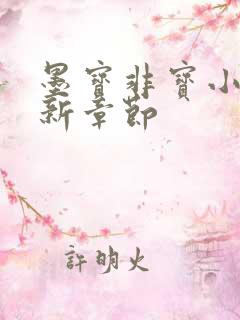 墨寶非寶小
新章節
許明火